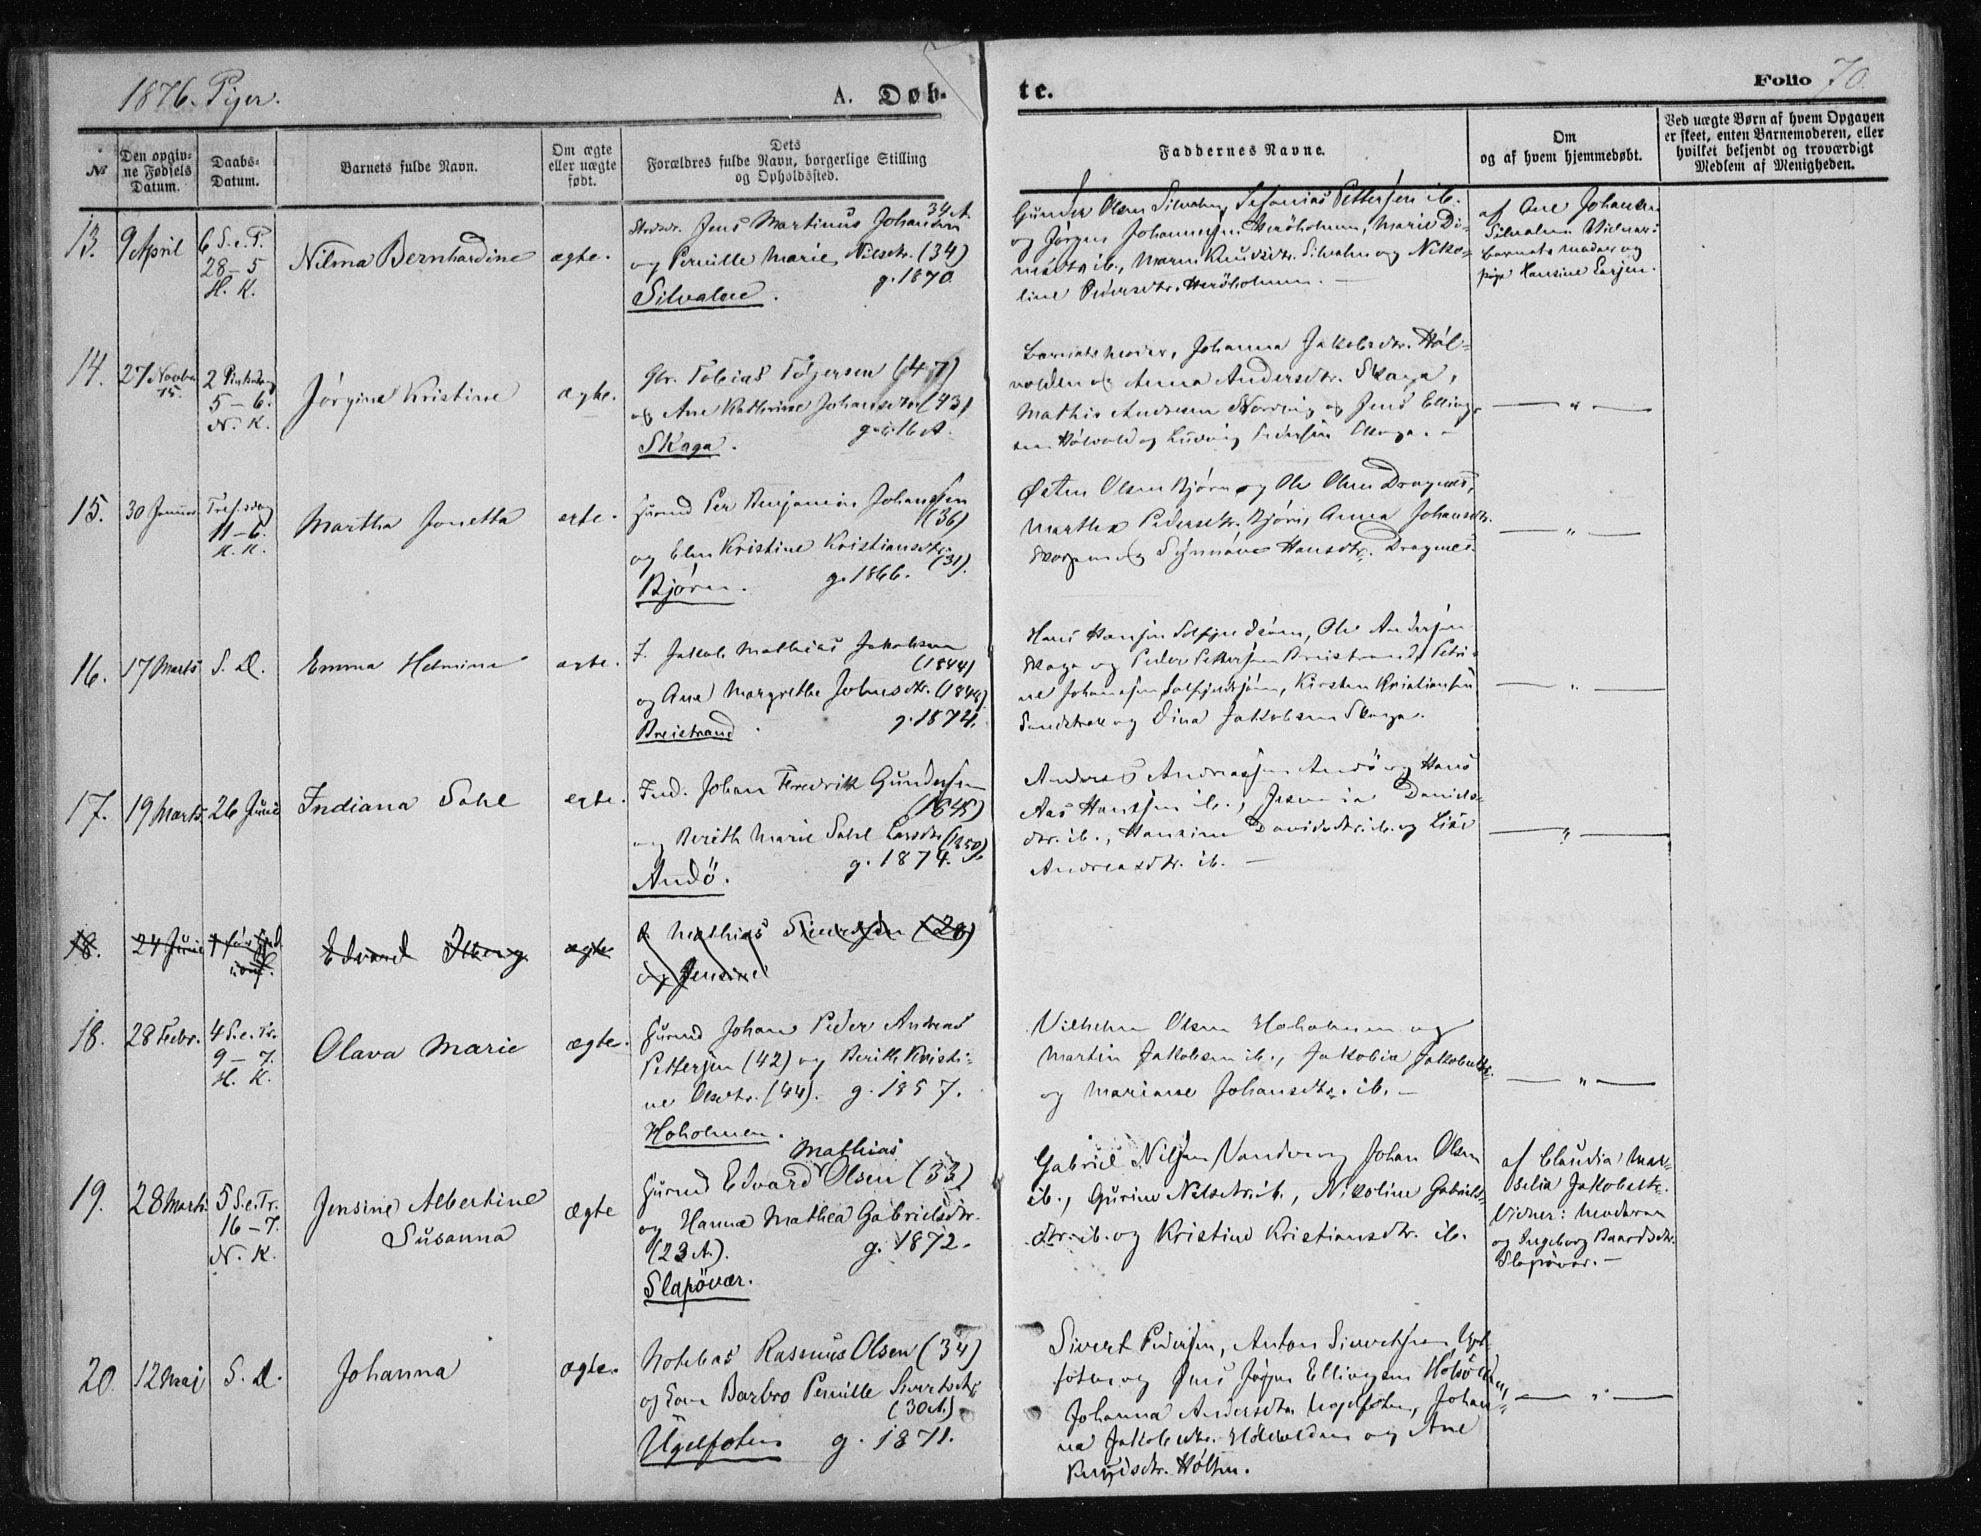 1876. Piger.
A. Døb-
te.
Folio 70.
№
Den opgiv-
ne Fødsels
Datum.
Daabs-
Datum.
Barnets fulde Navn.
Om ægte
eller uægte
født.
Dets
Forældres fulde Navn, borgerlige Stilling
og Opholdssted.
Faddernes Navne.
Om
og af hvem hjemmedøbt.
Ved uægte Børn af hvem Opgaven
er skeet, enten Barnemoderen, eller
hvilket bekjendt og troværdigt
Medlem af Menigheden.
13.
9 April
6 S. e. P.
28-5
H. K.
Nilma Bernhardine
ægte.
Jens Martinus Johansen
34 A.
og Pernille Marie Nilsdtr. (34)
g. 1870.
Silvalen.
Gunder Olsen Silvalen, Sefanias Pettersen ib.
og Jørgen Johannesen Herøholmen, Marie Di-
ib., Maren Knudsdtr. Silvalen og Niko-
line Pedersdtr. Herøholmen. -
af Ane Johansen
Silvalen Vidner:
Barnets moder og
pige Hansine Larsen.
14.
27 Novbr.
75.
2 Pintsedag
5-6.
N. K.
Jørgine Kristine
ægte.
Gbr. Tobias Tøgersen (47)
og Ane Katherine Johansdtr (43)
Skaga.
Barnets moder, Johanna Jakobsdtr. Høl-
volden og Anna Andersdtr. Skaga,
Mathis Andersen Nording og Jens Elling-
sen Hølvold og Ludvig Pedersen Skaga. -
— " —
15.
30 Januar
Trefsdag
11-6.
H. K.
Martha Jonetta
egte.
Gurmd Per Benjamin Johansen
(36)
og Elen Kristine Kristiansdtr.
(31).
Bjørn.
g. 1866.
Østen Olsen Bjørn og Ole Olsen Dragnes,
Martha Pedersdtr. Bjørn, Anna Johansdtr.
og Synnøve Hansdtr. Dragnes.
— " —
16.
17 Marts
S. D.
Emma Helmina
ægte.
I. Jakob Mathias Jakobsen
(1844)
og Ane Margrethe Johnsdtr. (1844)
g. 1874.
Breistrand.
Hans Hansen Solfjeldsjøen, Ole Andersen
Skaga og Peder Pettersen Breistrand, Petri-
ne Johansen Solfjeldsjøen, Kirsten Kristiansen
og Dina Jakobsen Skaga.
— " —
17.
19 Marts.
26 Juni
Indiana Sahl
egte.
Ind. Johan Fredrik Gundersen
(1845)
og Berith Marie Sahl Larsdtr (1850).
g. 1874.
Andö.
Anders Andreassen Andö og Hans
Aas Hansen ib., Jesmia Daniels-
dtr. ib., Hansine Davidsdtr. ib. og Lise
Andreasdtr. ib. -
— " —
18.
24 Juni
Edvard Iberg
ægte
Mathias Sivertsen (28)
og Jensine
18.
28 Febr.
4 S. e. Tr.
9-7.
H. K.
Olava Marie
ægte.
Gurmd Johan Peder Andreas
Pettersen (42) og Berith Kristi-
ne Olsdtr. (44). g. 1857.
Hoholmen.
Vilhelm Olsen Hoholmen og
Martin Jakobsen ib., Jakobia Jakobsdtr.
og Mariane Johansdtr. ib. -
— " —
19.
28 Marts.
5 S. e. Tr.
16-7.
N. K.
Jensine Albertine
Susanna
ægte
Mathias
Gurmd Edvard Olsen (33)
og Hanna Mathea Gabrielsdtr.
(23 A). g. 1872.
Slapövær.
Gabriel Nilsen Vandve og Johan Olsen
ib., Gurine Nilsdtr. ib., Nikoline Gabriels-
dtr. ib. og Kristine Kristiansdtr. ib.
af Claudia Mar-
selia Jakobsdtr.
Vidner: Moderen
og Ingeborg Baardsdtr.
Slapövær. -
20.
12 Maj
S. D.
Johanna
ægte.
Notebas Rasmus Olsen (34)
og Barbro Pernille Sivertsdtr.
(30 A.)
Ugelfoten g. 1871.
Sivert Pedersen, Anton Sivertsen Ugel-
foten og Jens Jørgen Ellingsen Hølvolden,
Johanna Andersdtr. Ugelfoten, Johan-
na Jakobsdtr. Hølvolden og Ane
— " —